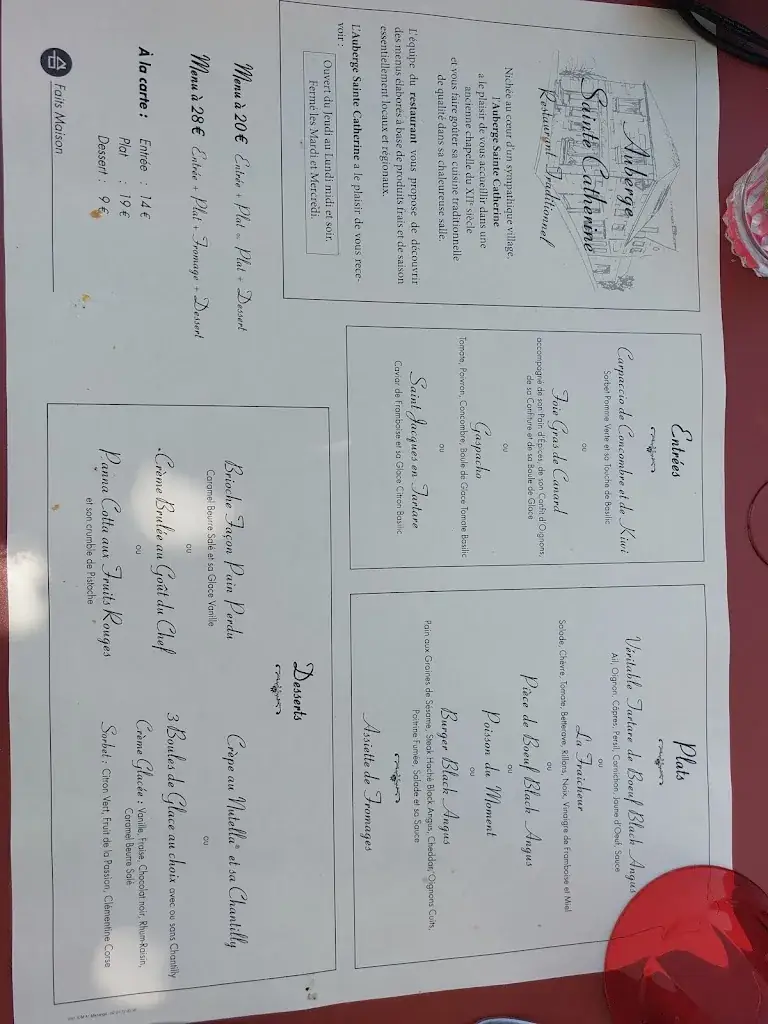 Auberge
Sainte Catherine
Restaurant Traditionnel
Nichée au cœur d'un sympathique village,
l'Auberge Sainte Catherine
a le plaisir de vous accueillir dans une
ancienne chapelle du XIIe siècle
et vous faire goûter sa cuisine traditionnelle
de qualité dans sa chaleureuse salle.
L'équipe du restaurant vous propose de découvrir
des menus élaborés à base de produits frais et de saison
essentiellement locaux et régionaux.
L'Auberge Sainte Catherine a le plaisir de vous rece-
voir :
Ouvert du Jeudi au Lundi midi et soir.
Fermé les Mardi et Mercredi.
Menu à 20€ Entrée + Plat o Plat + Dessert
Menu à 28€ Entrée + Plat + Fromage + Dessert
À la carte : Entrée : 14 €
Plat : 19 €
Dessert : 9 €
Faits Maison
Entrées
Carpaccio de Concombre et de Kiwi
Sorbet Pomme Verte et sa Touche de Basilic
ou
Foie Gras de Canard
accompagné de son Pain d'Épices, de son Confit d'Oignons,
de sa Confiture et de sa Boule de Glace
ou
Gaspacho
Tomate, Poivron, Concombre, Boule de Glace Tomate Basilic
ou
Saint Jacques en Tartare
Caviar de Framboise et sa Glace Citron Basilic
Plats
Véritable Tartare de Boeuf Black Angus
Ail, Oignon, Câpres, Persil, Cornichon, Jaune d'Oeuf, Sauce
ou
La Fraîcheur
Salade, Chèvre, Tomate, Betterave, Rillons, Noix, Vinaigre de Framboise et Miel
ou
Pièce de Boeuf Black Angus
ou
Poisson du Moment
ou
Burger Black Angus
Pain aux Graines de Sésame, Steak Haché Black Angus, Cheddar, Oignons Cuits,
Poitrine Fumée, Salade et sa Sauce
Assiette de Fromages
Desserts
Brioche Façon Pain Perdu
Caramel Beurre Salé et sa Glace Vanille
ou
Crème Brulée au Goût du Chef
ou
Panna Cotta aux Fruits Rouges
et son crumble de Pistache
Crêpe au Nutella® et sa Chantilly
ou
3 Boules de Glace au choix avec ou sans Chantilly
Crème Glacée : Vanille, Fraise, Chocolat noir, Rhum-Raisin,
Caramel Beurre Salé
Sorbet : Citron Vert, Fruit de la Passion, Clémentine Corse